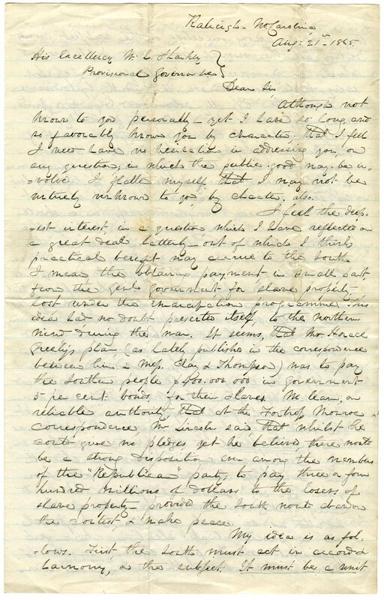 Raleigh N Carolina
Aug. 21st 1865
His Excellency W. L. Sharkey
Provisional Governor
Dear Sir,
Although not
known to you personally – yet I have so long and
so favorably known you by character that I feel
I need have no hesitation in addressing you on
any question, in which the public good may be in-
volved. I flatter myself that I may not be
entirely unknown to you by character, also.
I feel the deep-
est interest, in a question which I have reflected on
a great deal latterly – out of which I think
practical benefit may accrue to the South
I mean the obtaining payment in small part
from the genl. government for slave property
lost under the emancipation programme. This
idea had no doubt presented itself, to the northern
mind during the war. It seems, that Mr. Horace
Greely's plan (as lately published in the correspondence
between him & Mess. Clay & Thompson) was to pay
the Southern people $400,000,000 in government
5 per cent. bonds for their slaves. We learn, on
reliable authority that at the Fortress Monroe
correspondence Mr Lincoln said that whilst he
could give no pledges yet he believed there would
be a strong disposition even among the members
of the "Republican" party to pay three or four
hundred millions of dollars to the losers of
slave property – provided the South would abandon
the contest & make peace.
My idea is as fol-
lows. First the South must act in accord &
harmony, on the subject. It must be a unit